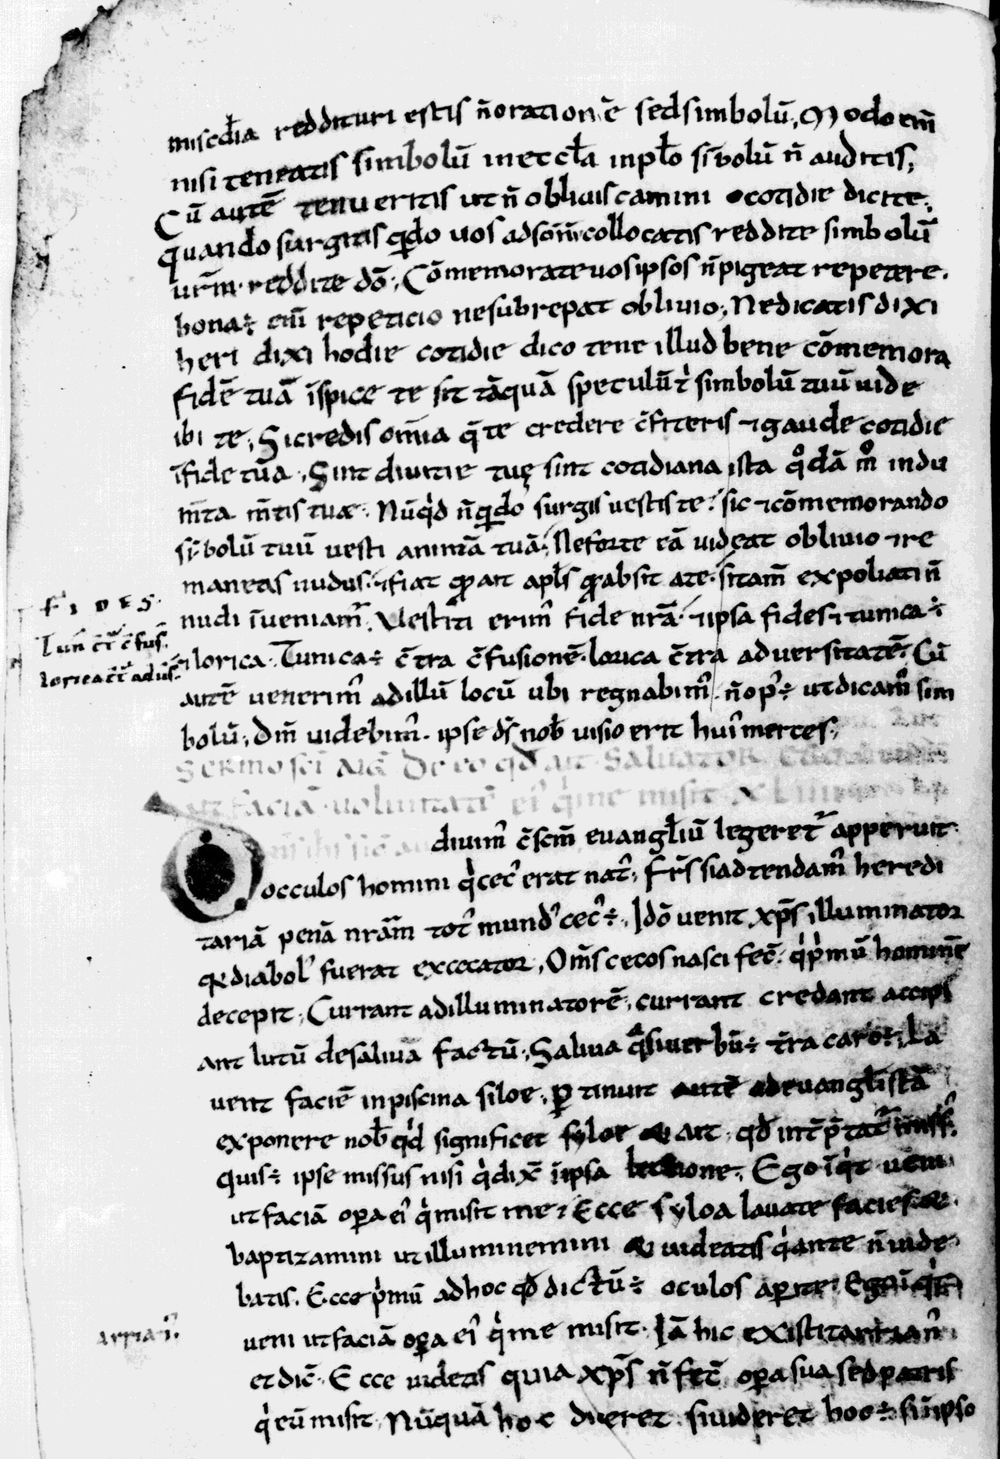 miscd̄ia reddituri estis n̄ oration̄e sed simbolū. Modo em̄
nisi teneatis simbolū in eccl̄a in pl̄o si̅bolū n̄ auditis.
Cū autē tenueritis ut n̄ obliuiscamini cotidie dicite.
quando surgitis qn̄do uos ad som̄ collocatis reddite simbolū
ur̄m. reddite dō. Cōmemorate uos ipsos n̄ pigeat repetere.
bona ÷ em̄ repeticio ne subrepat obliuio. Ne dicatis dixi
heri dixi hodie cotidie dico tene illud bene cōmemora
fidē tuā īspice te sit tāquā speculū t' simbolū tuū uide
ibi te. Si credis om̄ia q̄ te credere c̄fiteris ⁊ gaude cotidie
ī fide tua. Sint diuitie tuę sint cotidiana ista qdā m̊ indu
m̄ta m̄tis tuæ. Nūqd n̄ qn̄do surgis uestis te? sic ⁊ cōmemorando
si̅bolū tuū uesti animā tuā. Ne forte eā uideat obliuio ⁊ re
maneas nudus. ⁊ fiat qd ait apl̄s qd absit a te. si tam̄ expoliati n̄
nudi īueniam̄. Vestiti erim̄ fide nr̄a. ⁊ ipsa fides ⁊ tunica ÷
⁊ lorica. Tunica ÷ c̄tra c̄fusionē. lorica c̄tra aduersitatē. Cū
autē uenerim̄ ad illū locū ubi regnabim̄. n̄ op' ÷ ut dicam̄ sim
bolū. dm̄ uidebim̄. ipse ds̄ nob̄ uisio erit hui' merces.
f i d e s.
Tuń c̄t' c̄fuſ.
lorica c̄t' aduſ.
Sermo sc̄i Aug̅ De eo qd̄ ait Saluator
ut faciā uoluntatē ei' q̓ me misit
diuim̄ c̄scm̄ euangl̄iū legeret' apperuit
occulos homini q̓ cec' erat nat'. fr̄s si adtendam̄ heredi
tariā penā nr̄am tot' mund' cec' ÷. Idō uenit xp̄s illuminator
q̓ diabol' fuerat excecator. Om̄s cecos nasci fec̄. q̓ p̓mū hominē
decepit. Currant ad illuminatorē. currant credant accipi
ant lutū de saliua factū. Saliua q̓si uerbū ÷ t̄ra caro ÷. La
uent faciē in piscina siloe. ꝑtinuit autē ad euangl̄istā
exponere nob̄ q̓d significet syloe & ait. qd̄ int̄p̄tat' miss'.
quis ÷ ipse missus nisi q̓ dix̄ ī ipsa lectione. Ego īq̓t ueni
ut faciā oꝑa ei' q̓ misit me. Ecce syloa lauate facies
baptizamini ut illuminemini & uideatis q̓ ante n̄ uide
batis. Ecce p̓mū ad hoc qd̄ dictū ÷ oculos aꝑite. Ego īq̓t
ueni ut faciā oꝑa ei' q̓ me misit. Iā hic existit arrian'
arrian'.
et dic̄. Ecce uidetis quia xp̄s n̄ fec̄ oꝑa sua sed patris
q̓ eū misit. Nūquā hoc diceret si uideret hoc ÷ si n̄ ipso